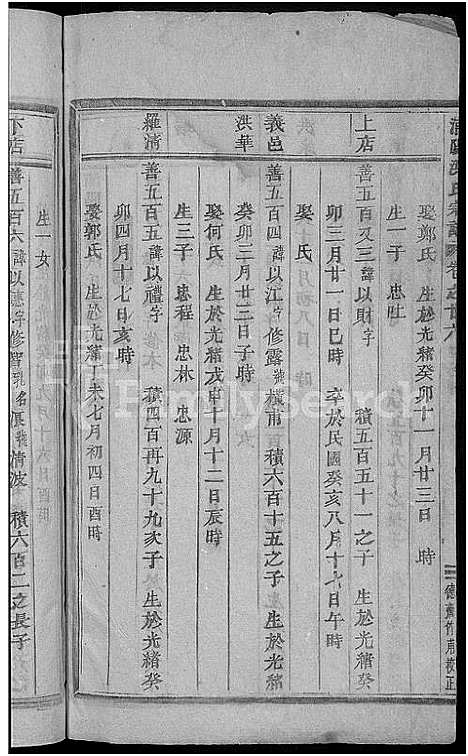 娶鄭氏 生於光緒癸卯十一月廿三日 時
生一子 忠吐
上店 善五百又三諱以財字 積五百五十一之子 生於光緒癸
卯三月廿一日巳時 卒於民國癸亥八月十七日午時
娶 氏
義邑 善五百四諱以江字修露號橫甫 積六百十五之子 生於光緒
洪華 癸卯三月廿三日子時
娶何氏 生於光緒戊申十月十二日辰時
生三子 忠程 忠林 忠源
羅清 善五百五諱以禮字 積四百再九十九次子 生於光緒癸
卯四月十七日亥時
娶郭氏 生於光緒丁未七月初四日酉時
生一女
下店 善五百六諱以惠字修賢乳名 號清波 積六百二之長子
FamilySearch